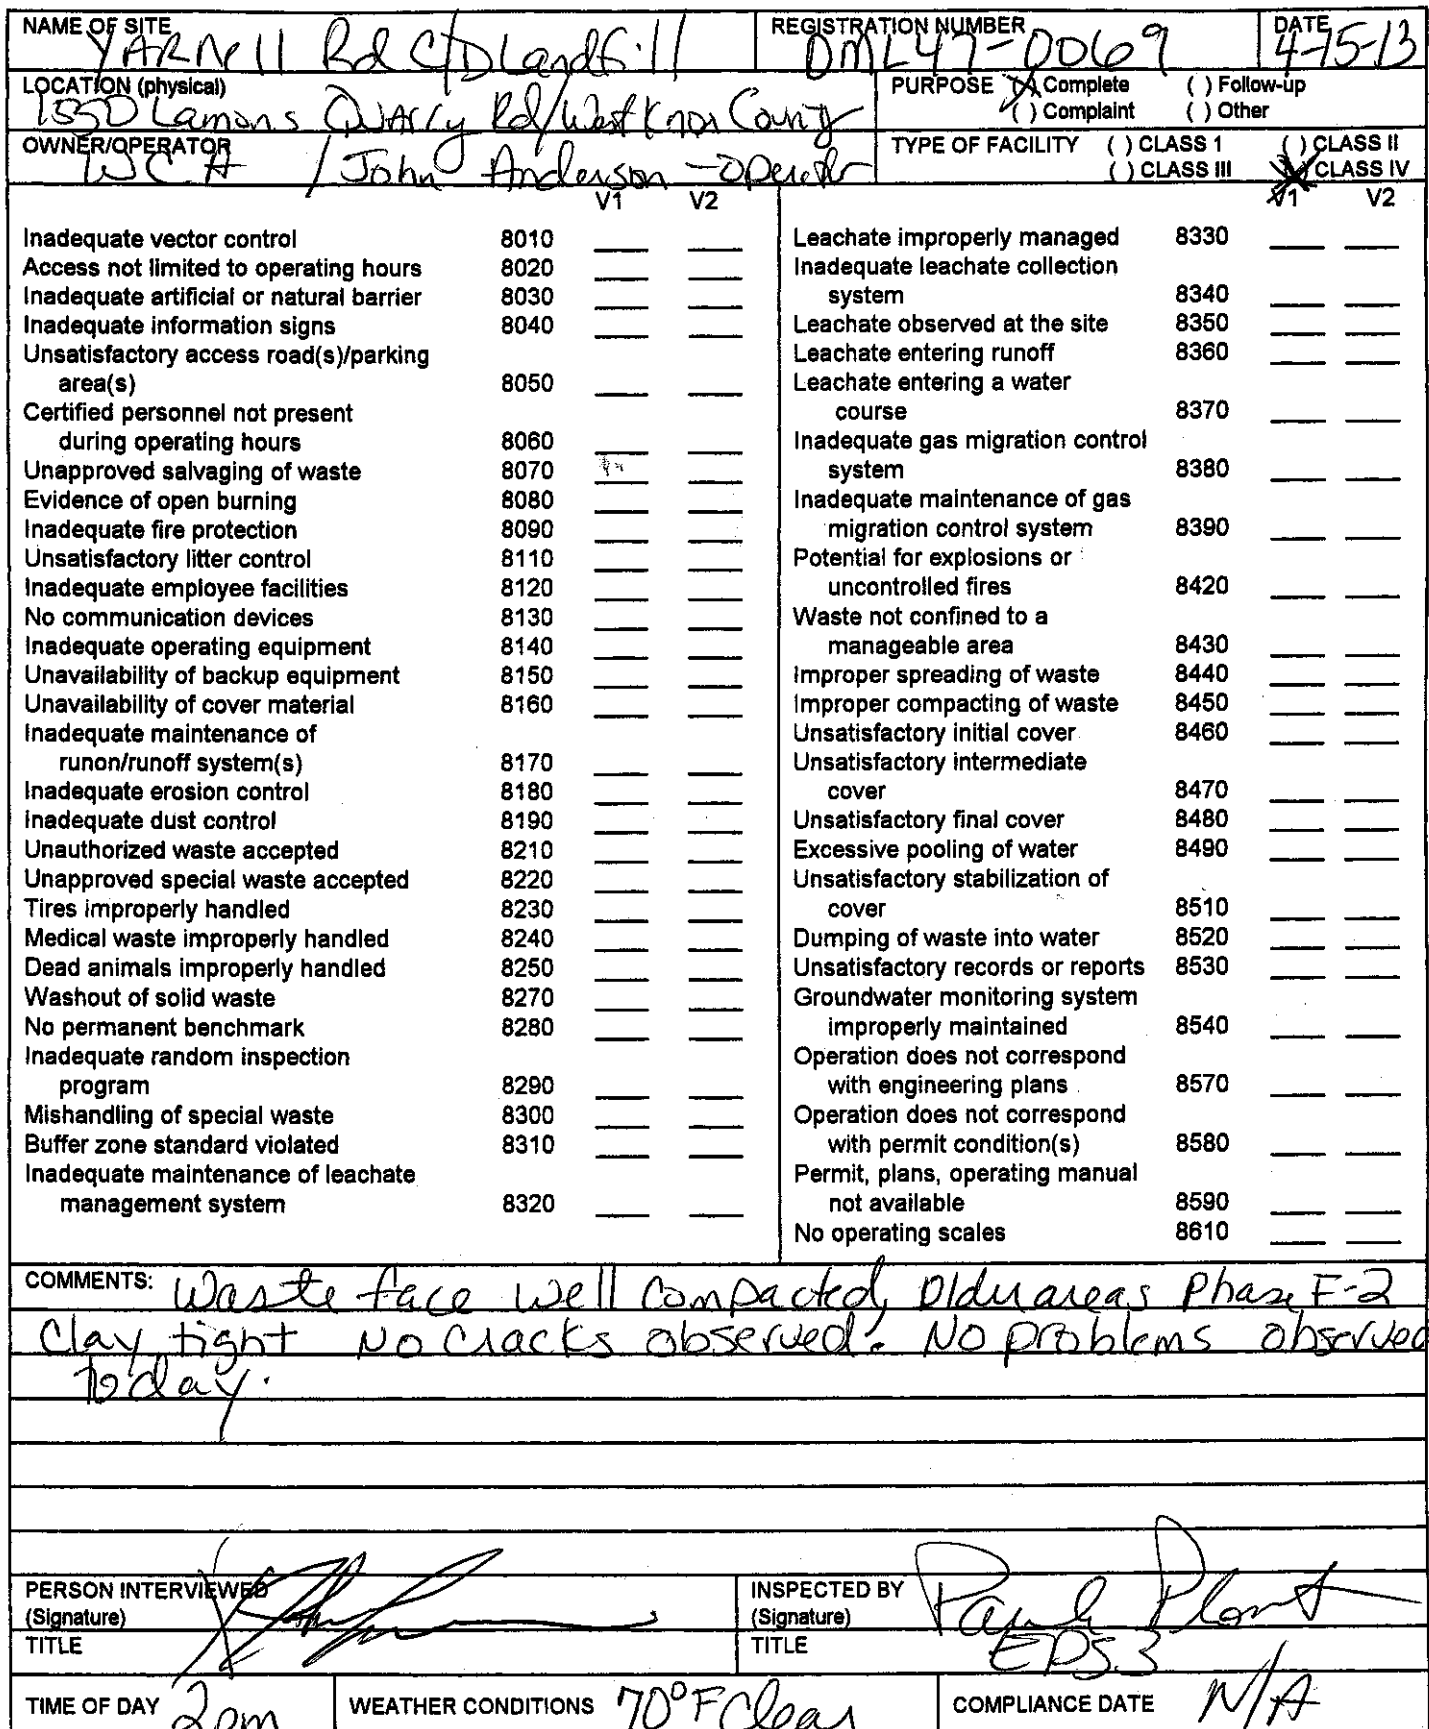 NAME OF SITE YARNell Rd C/D Landfill
REGISTRATION NUMBER DML47-0069
DATE 4-15-13
LOCATION (physical) 1550 Lamons Quarry Rd/West Knox County
PURPOSE (X) Complete ( ) Follow-up
( ) Complaint ( ) Other
OWNER/OPERATOR WCA / John Anderson - Operator
TYPE OF FACILITY ( ) CLASS 1 ( ) CLASS II
( ) CLASS III (X) CLASS IV
V1 V2
Inadequate vector control 8010
Access not limited to operating hours 8020
Inadequate artificial or natural barrier 8030
Inadequate information signs 8040
Unsatisfactory access road(s)/parking
area(s) 8050
Certified personnel not present
during operating hours 8060
Unapproved salvaging of waste 8070
Evidence of open burning 8080
Inadequate fire protection 8090
Unsatisfactory litter control 8110
Inadequate employee facilities 8120
No communication devices 8130
Inadequate operating equipment 8140
Unavailability of backup equipment 8150
Unavailability of cover material 8160
Inadequate maintenance of
runon/runoff system(s) 8170
Inadequate erosion control 8180
Inadequate dust control 8190
Unauthorized waste accepted 8210
Unapproved special waste accepted 8220
Tires improperly handled 8230
Medical waste improperly handled 8240
Dead animals improperly handled 8250
Washout of solid waste 8270
No permanent benchmark 8280
Inadequate random inspection
program 8290
Mishandling of special waste 8300
Buffer zone standard violated 8310
Inadequate maintenance of leachate
management system 8320
V1 V2
Leachate improperly managed 8330
Inadequate leachate collection
system 8340
Leachate observed at the site 8350
Leachate entering runoff 8360
Leachate entering a water
course 8370
Inadequate gas migration control
system 8380
Inadequate maintenance of gas
migration control system 8390
Potential for explosions or
uncontrolled fires 8420
Waste not confined to a
manageable area 8430
Improper spreading of waste 8440
Improper compacting of waste 8450
Unsatisfactory initial cover 8460
Unsatisfactory intermediate
cover 8470
Unsatisfactory final cover 8480
Excessive pooling of water 8490
Unsatisfactory stabilization of
cover 8510
Dumping of waste into water 8520
Unsatisfactory records or reports 8530
Groundwater monitoring system
improperly maintained 8540
Operation does not correspond
with engineering plans 8570
Operation does not correspond
with permit condition(s) 8580
Permit, plans, operating manual
not available 8590
No operating scales 8610
COMMENTS: Waste face well compacted, Older areas Phase F-2
Clay tight No cracks observed. No problems observed
today.
PERSON INTERVIEWED
(Signature)
TITLE
INSPECTED BY
(Signature)
TITLE EPS.3
TIME OF DAY 2pm
WEATHER CONDITIONS 70°F Clear
COMPLIANCE DATE N/A